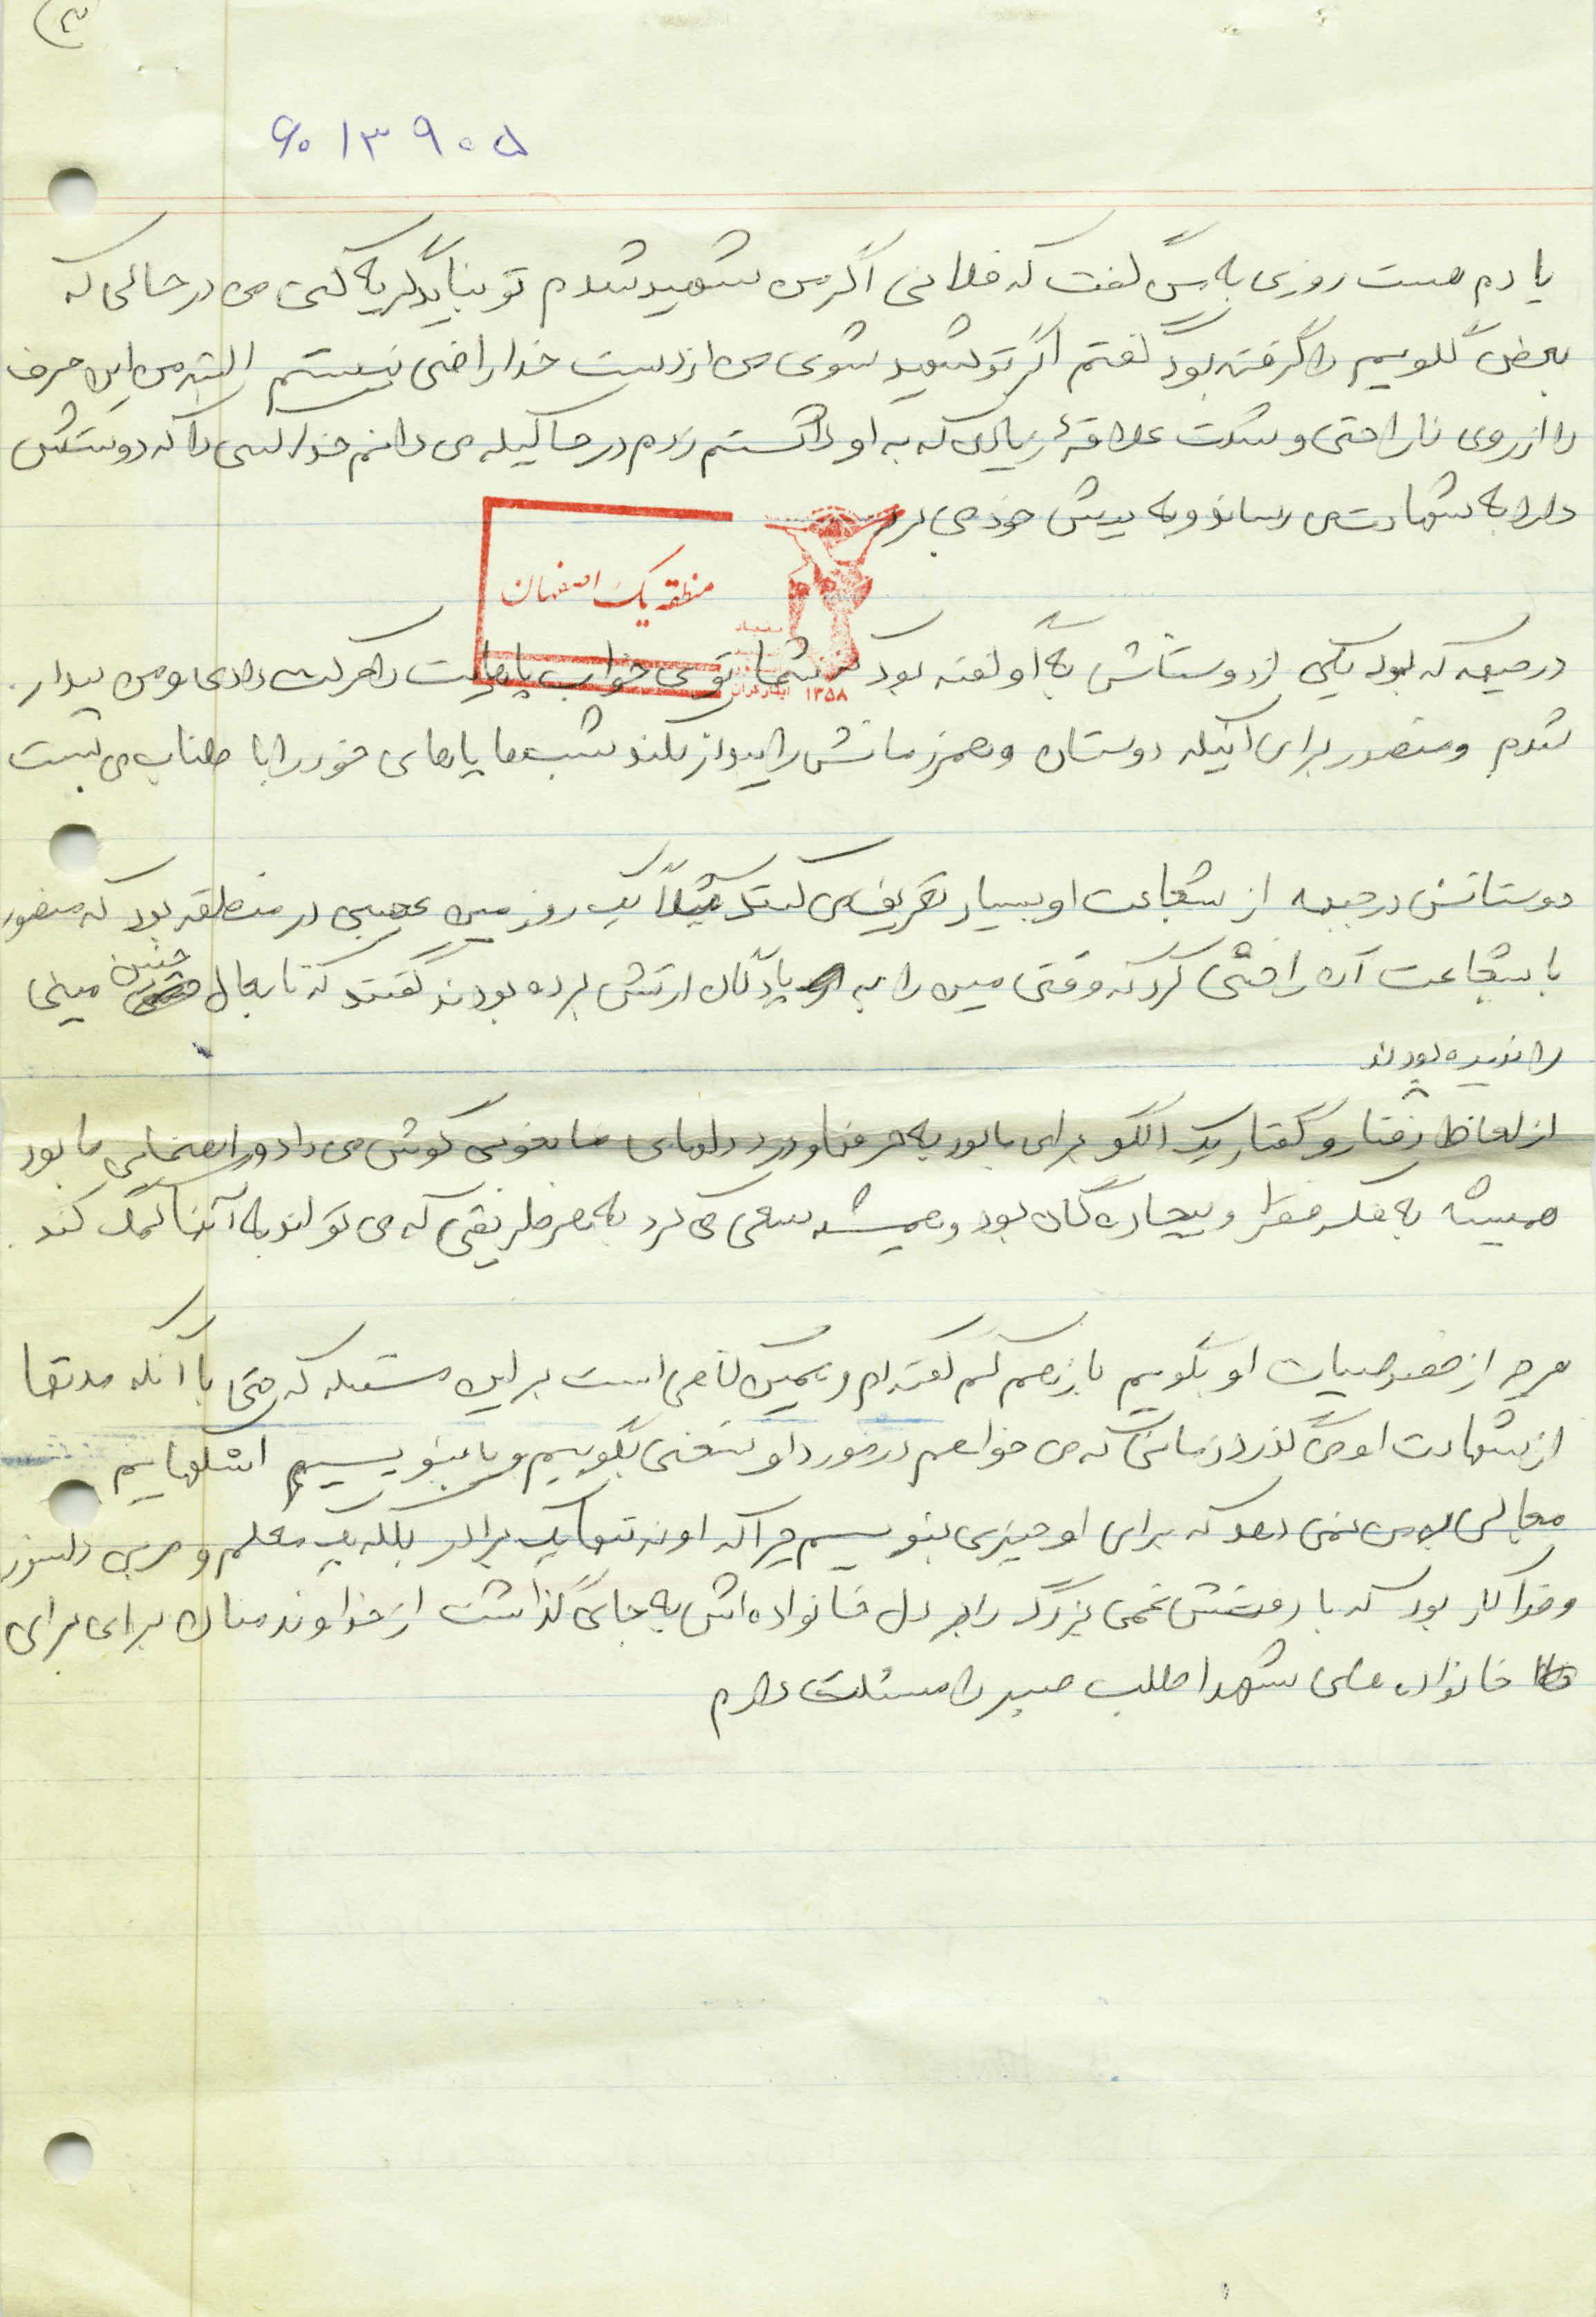 ۶۰۱۳۹۰۵
یادم هست روزی به من گفت که فلانی اگر من شهید شدم تو نباید گریه کنی من در حالی که
بغض گلویم را گرفته بود گفتم اگر تو شهید شوی من از دست خدا راضی نیستم البته من این حرف
را از روی ناراحتی و شدت علاقهٔ زیادی که به او داشتم زدم در حالیکه می دانم خدا کسی را که دوستش
دارد به شهادت می رساند و به پیش خود می برد
منطقه یک اصفهان
بنیاد
ایثارگران ۱۳۵۸
در جبهه که بود یکی از دوستانش به او گفته بود که شما توی خواب پاهایت را حرکت دادی و من بیدار
شدم و منصور برای اینکه دوستان و همرزمانش را بیدار نکند شب ها پاهای خود را با طناب می بست
دوستانش در جبهه از شجاعت او بسیار تعریف می کنند مثلاً یک روز مین عجیبی در منطقه بود که منصور
با شجاعت آن را خنثی کرد که وقتی مین را به پادگان ارتش برده بودند گفتند که تا بحال چنین مینی
را ندیده بودند
از لحاظ رفتار و گفتار یک الگو برای ما بود به حرفها و درد دلهای ما بخوبی گوش می داد و راهنمای ما بود
همیشه به فکر فقرا و بیچاره گان بود و همیشه سعی می کرد به هر طریقی که می تواند به آنها کمک کند
هرچه از خصوصیات او بگویم باز هم کم گفته ام و همین کافی است بر این مسئله که حتی با آنکه مدتها
از شهادت او می گذرد زمانی که می خواهم در مورد او سخنی بگوییم و یا بنویسیم اشکهایم
مجالی به من نمی دهد که برای او چیزی بنویسم چرا که او نه تنها یک برادر بلکه یک معلم و مربی دلسوز
و فداکار بود که با رفتنش غمی بزرگ را بر دل خانواده اش به جای گذاشت از خداوند منان برای برای
خانواده های شهدا طلب صبر را مسئلت دارم